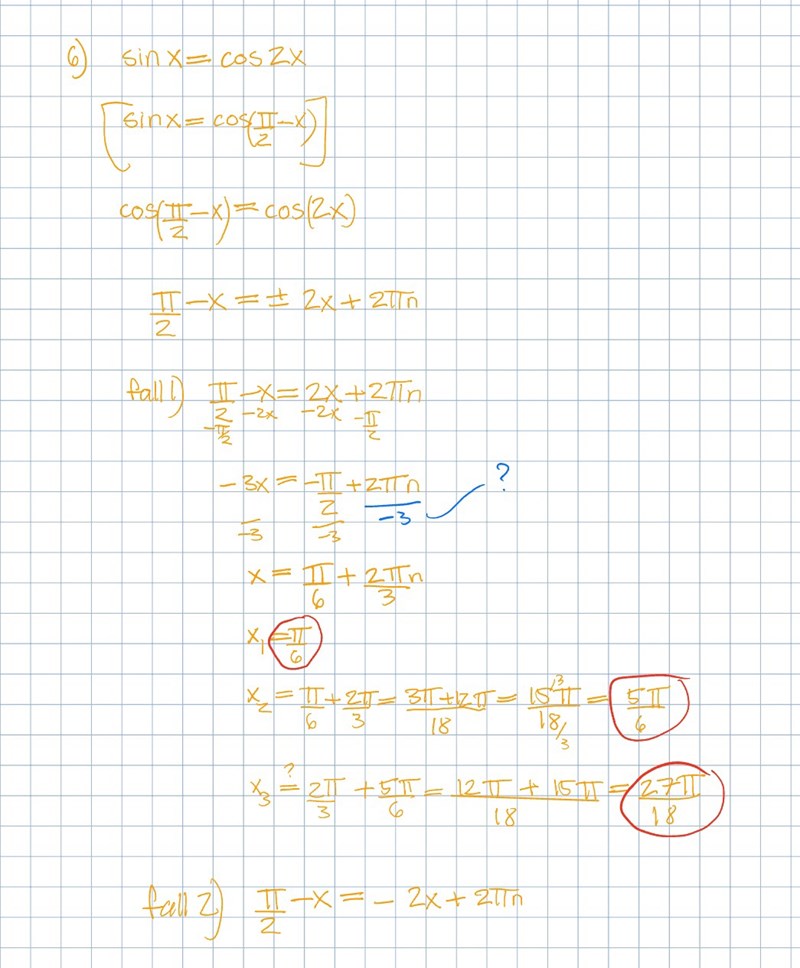 6) sin x = cos 2x
[sin x = cos(π/2 - x)]
cos(π/2 - x) = cos(2x)
π/2 - x = ± 2x + 2πn
fall 1) π/2 - x = 2x + 2πn
-π/2 -2x -2x -π/2
-3x = -π/2 + 2πn ?
/-3 /-3 /-3
x = π/6 + 2πn/3
x₁ = π/6
x₂ = π/6 + 2π/3 = (3π + 12π)/18 = 15π/18 /3 /3 = 5π/6
x₃ =? 2π/3 + 5π/6 = (12π + 15π)/18 = 27π/18
fall 2) π/2 - x = - 2x + 2πn